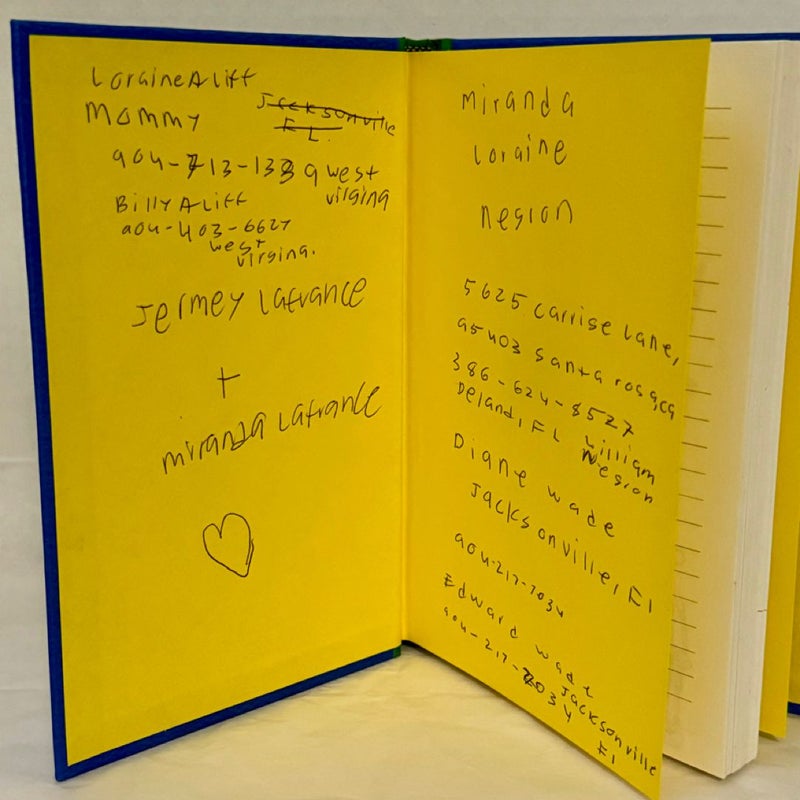 Loraine Aliff
mommy
Jacksonville
FL.
904-713-1339 west
virging
Billy Aliff
904-403-6627
west
virgina.
Jermey Lafrance
+
miranda Lafrance
miranda
loraine
negron
5625 carrise lane,
95403 santa rosa,ca
386-624-8527
Deland, FL William
Negron
Diane wade
Jacksonville, Fl
904-217-7034
Edward wade
904-217-7034 Jacksonville
Fl